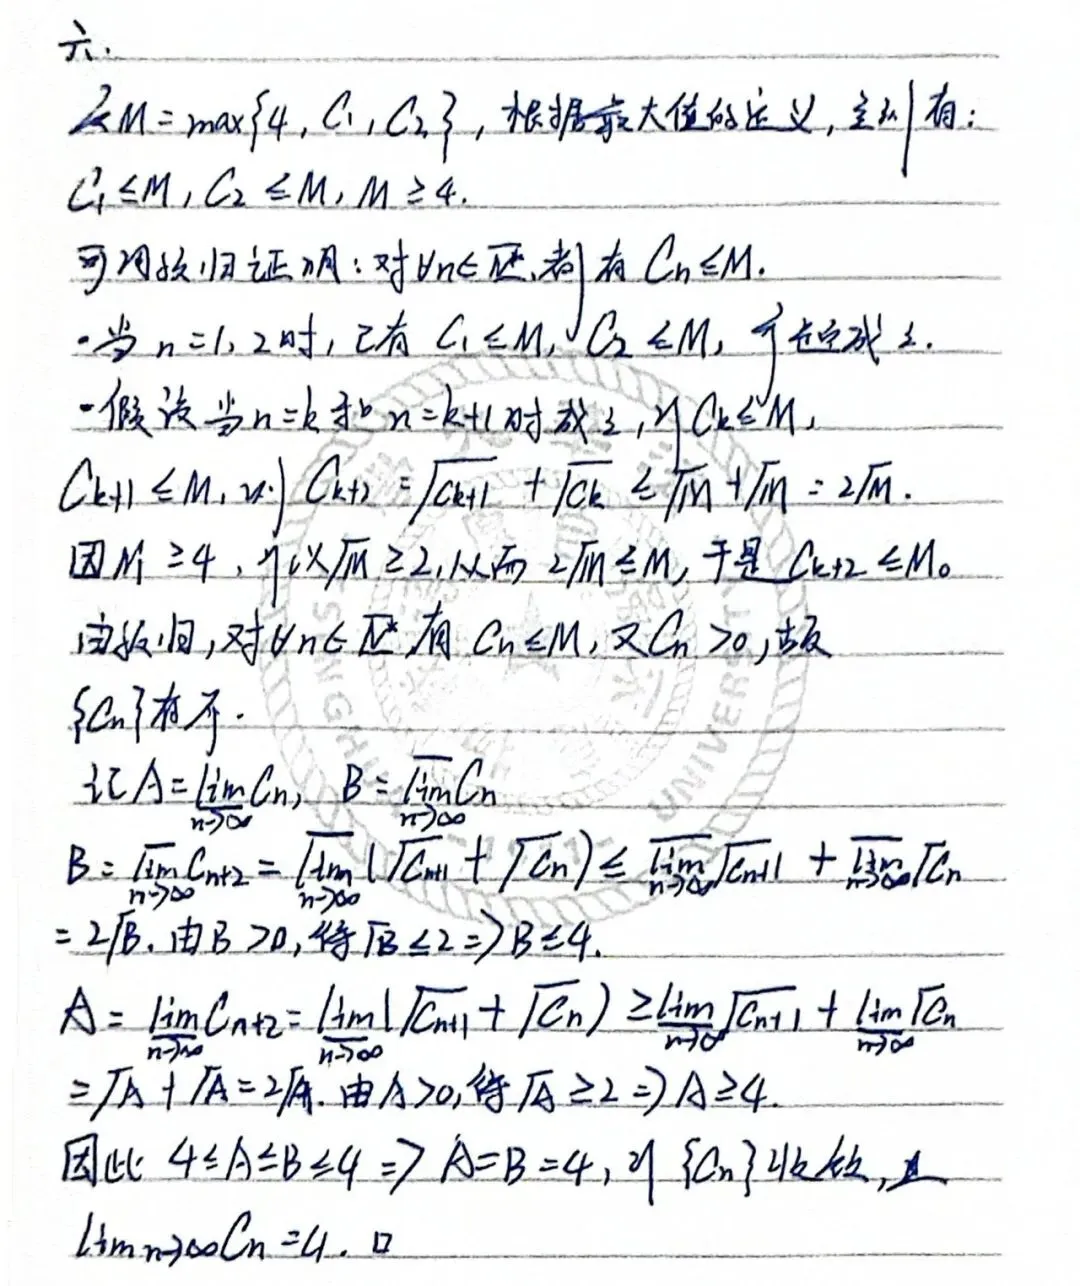 六.
令M=max{4, C₁, C₂}, 根据最大值的定义, 立刻有:
C₁≤M, C₂≤M, M≥4.
可用数归证明:对∀n∈ℤ⁺,都有 Cₙ≤M.
·当 n=1, 2时, 已有 C₁≤M, C₂≤M, 命题成立.
·假设当n=k和n=k+1时成立, 即Cₖ≤M,
Cₖ₊₁≤M, 则 Cₖ₊₂=√Cₖ₊₁+√Cₖ≤√M+√M=2√M.
因M≥4, 所以√M≥2,从而 2√M≤M, 于是 Cₖ₊₂≤M。
由数归,对∀n∈ℤ⁺,有 Cₙ≤M, 又Cₙ>0, 故
{Cₙ}有界.
记A=lim̲ₙ→∞Cₙ, B=lim̅ₙ→∞Cₙ
B=lim̅ₙ→∞Cₙ₊₂=lim̅ₙ→∞(√Cₙ₊₁+√Cₙ)≤lim̅ₙ→∞√Cₙ₊₁+lim̅ₙ→∞√Cₙ
=2√B. 由B>0, 得√B≤2⇒B≤4.
A=lim̲ₙ→∞Cₙ₊₂=lim̲ₙ→∞(√Cₙ₊₁+√Cₙ)≥lim̲ₙ→∞√Cₙ₊₁+lim̲ₙ→∞√Cₙ
=√A+√A=2√A. 由A>0, 得√A≥2⇒A≥4.
因此 4≤A≤B≤4⇒A=B=4, 即{Cₙ}收敛,且
limₙ→∞Cₙ=4. □
UNIVERSITY
-1911-